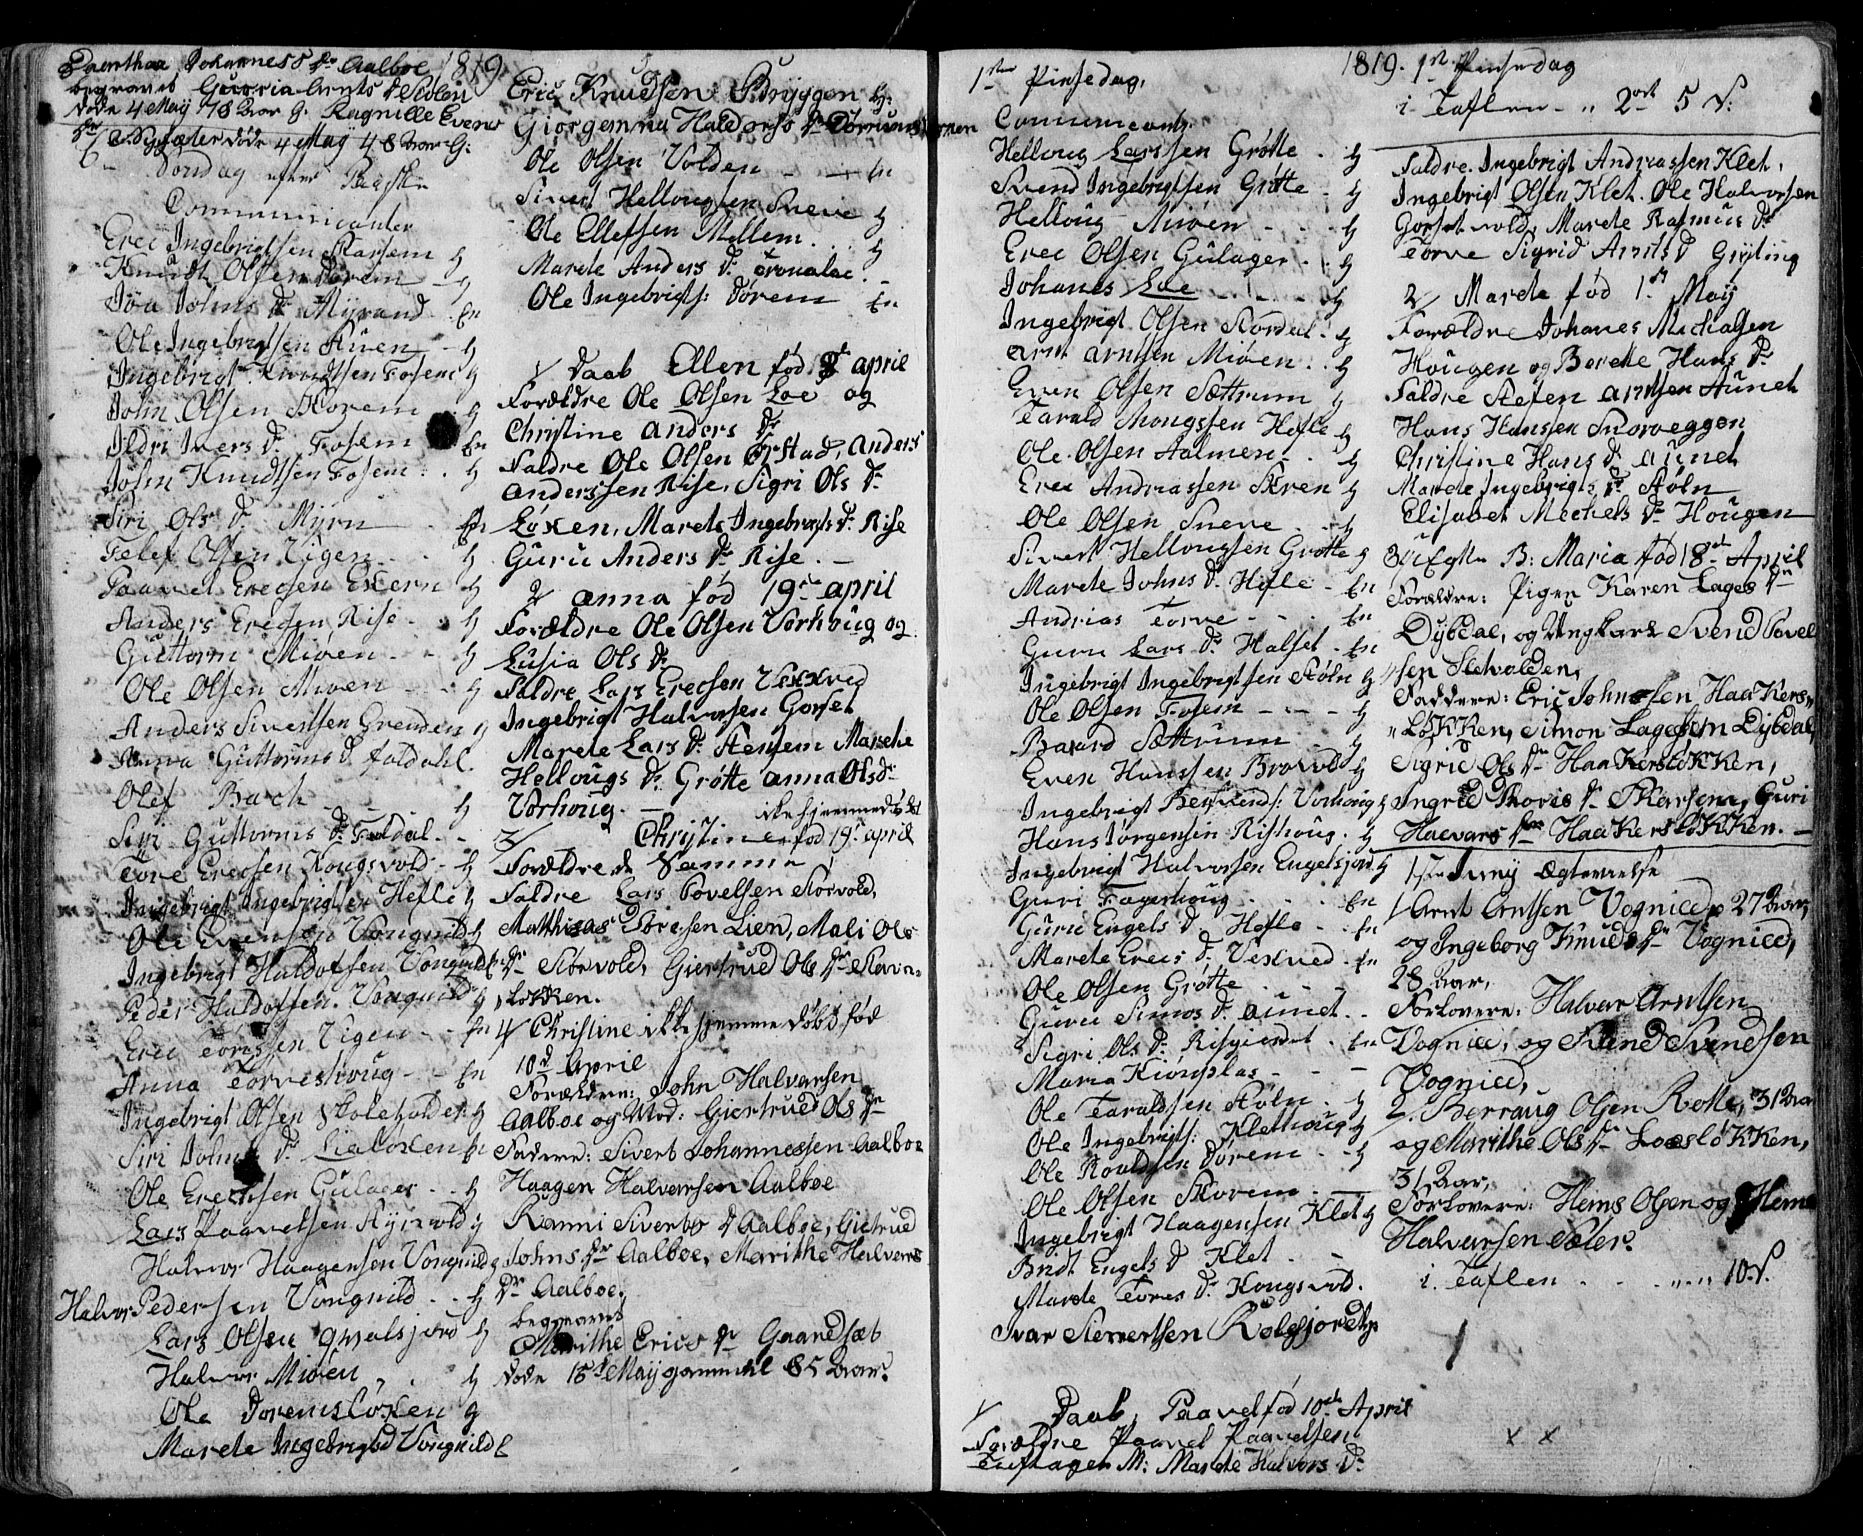 Dorthea Johanness Dr Aalboe 1819.
begravet Guoria Arnts D Stölen
Döde 4 May 78 Aar G. Ragnille Evens
Dr Sæter döde 4 May 48 Aar G:
6 Söndag efter Paaske
Communicanter
Erec Ingebrigtsen Skarsem h
Knudt Olsen Dorem h
Jöa Johns Dr Myrand En
Ole Ingebrigtsen Auen h
Ingebrigt Knudtsen Fosem h
John Olsen Skorem h
Ildri Ivers Dr Fosem En
John Knudtsen Fosem h
Siri Ols Dr Myrn En
Felef Olsen Vigen h
Paavel Erecsen Exern h
Anders Erecsen Rise h
Guttorm Miöen h
Ole Olsen Miöen h
Anders Sivertsen Grenden h
Anna Guttorms D faldahl.
Olef Bach h
Siri Guttorms Dr Faldal
Tore Erecsen Kongsvold h
Ingebrigt Ingebrigtsen Hefle h
Ole Evensen Vongnild h
Ingebrigt Haldorsen Vongnild
Peder Haldorsen Vongnild h
Eric Toressen Vigen En
Anna Torveshoug En
Ingebrigt Olsen Skoleholder h
Siri Johns Dr Lialöxen En
Ole Erecksen Gulager h
Lars Paavelsen h
Halvor Haagensen Vongnild h
Halvor Pedersen Vongnild h
Lars Olsen h
Halvor Miöen h
Ole Doremslöxen h
Marete Ingebrigts D Vongnild
Eric Knudsen Bryggen h:
Giorgemina Haldorss Dr
Ole Olsen Volden En
Sivert Hellougsen Sneve h
Ole Ellefsen Mellem h
Marete Anders Dr
Ole Ingebrigts: Dörem En
1/ Daab Ellen fød 8 april
Forældre Ole Olsen Loe og
Christine Anders Dr
Faldre Ole Olsen Ørstad, Anders
Anderssen Rise, Sigri Ols Dr
Löxen, Marete Ingebrigts Dr Rise
Guru Anders Dr Rise.
2/ anna fød 19de april
Forældre Ole Olsen Vorhoug og
Lusia Ols Dr
Faldre Lars Erecsen Vexved
Ingebrigt Halvorsen Gorset
Marete Lars Dr Stensem Marehe
Hellougs Dr Grötte anna Ols dr
Vorhoug. ikke hjemmedöbt
3/ Christine fød 19 april
Forældre de Samme
Faldre Lars Povelsen Störvold,
Matthias Toresen Lien, Mali Ols
Dr Störvold, Giertrud Ols Dr Skavs
lökken.
4/ Christine ikke hjemmedöbt fød
10d April
Forældre: John Halvarsen
Aalboe og Mod: Giertrud Ols Dr
Faddere: Sivert Johannessen Aalboe
Haagen Halvarsen Aalboe
Ranni Siverts D Aalboe, Gietrud
Johns Dr Aalboe, Marithe Halvars
Dr Aalboe,
begravet
Marithe Erics Dr Gaardsæt
döde 15d May gammel 85 Aar.
1ste Pinsedag,
Communicants.
Helloug Larssen Grötte h
Svend Ingebrigtsen Grötte h
Helloug Miöen h
Erec Olsen Gulager h
Johanes Loe h
Ingebrigt Olsen Stordal h
Arnt Arntsen Miöen h
Even Olsen Sættrum h
Tarald Mongssen Hefle h
Ole Olsen Aalmen h
Erec Andriassen Skren h
Ole Olsen Sneve h
Sivert Hellougsen Grötte h
Marete Johns Dr Hefle En
Andrias Torve En
Guru Lars Dr Halset En
Ingebrigt Ingebrigtsen Stöln h
Ole Olsen Fosem h
Baard Sættrum h
Even Hanssen Brovold h
Ingebrigt Vorhoug h
Hans Jörgensen Rishoug h
Ingebrigt Halvorsen Engelsjord h
Guri Fagerhoug En
Guru Engels D. Hefle En
Marete Erecs Dr Vexved En
Ole Olsen Grötte
Guru Simos Dr Aunet
Sigri Ols Dr Risgierdet En
Maria Kiönslas
Ole Taraldsen Stöln h
Ole Ingebrigts: Klethoug h
Ole Roaldsen Dörem h
Ole Olsen Skorem
Ingebrigt Haagensen Klet h
Brdt Engels D Klet
Marete Tores Dr Kongsvold.
Ivar Sievertsen Rolesjordet h
1/ Daab, Paavel fød 10de April
Forældre Paavel Paavelsen
M: Marete Halvors Dr
1819. 1ste Pinsedag
i Taflen 2 ort 5 S:
Faldre. Ingebrigt Andriassen Klet,
Ingebrigt Olsen Klet. Ole Halvorsen
Gorsetvold, Marete Rasmus Dr
Torve Sigrid Arnts D Gryting
2/ Marete fød 1st May
Forældre Johanes Michalsen
Hougen og Berette Hans Dr
Faldre Stefen Arntsen Aunet
Hans Hansen Snoveggen
Christine Hans D Aunet
Marete Ingebrigts Dr Stöln
Elisabet Mechels Dr Hougen
3/ U Egte B: Maria fød 18de April
Forældre: Pigen Karen Lages Dr
Dybdal, og Ungkarl Svend Povel
sen Sletvolden,
Faddere: Eric Johnsen Haakers
lökken, Simon Lagesen Dybdal,
Sigrid Ols Dr Haakerslökken,
Ingrid Thoris Dr Skarsem, Guri
Halvars Dr Haakerslökken.
1ste Juny Egtevielse
1 Arnt Arntsen Vognild 27 Aar,
og Ingeborg Knuds Dr Vognild,
28 Aar,
Forlovere: Halvar Arntsen
Vognild, og Svend Svendsen
Vognild,
2. Berraug Olsen Rotte, 31 Aar
og Marithe Ols Dr Loeslökken,
31 Aar,
Forlovere: Hems Olsen og Hems
Halvarsen Sæter.
i Taflen 10 S.
x x